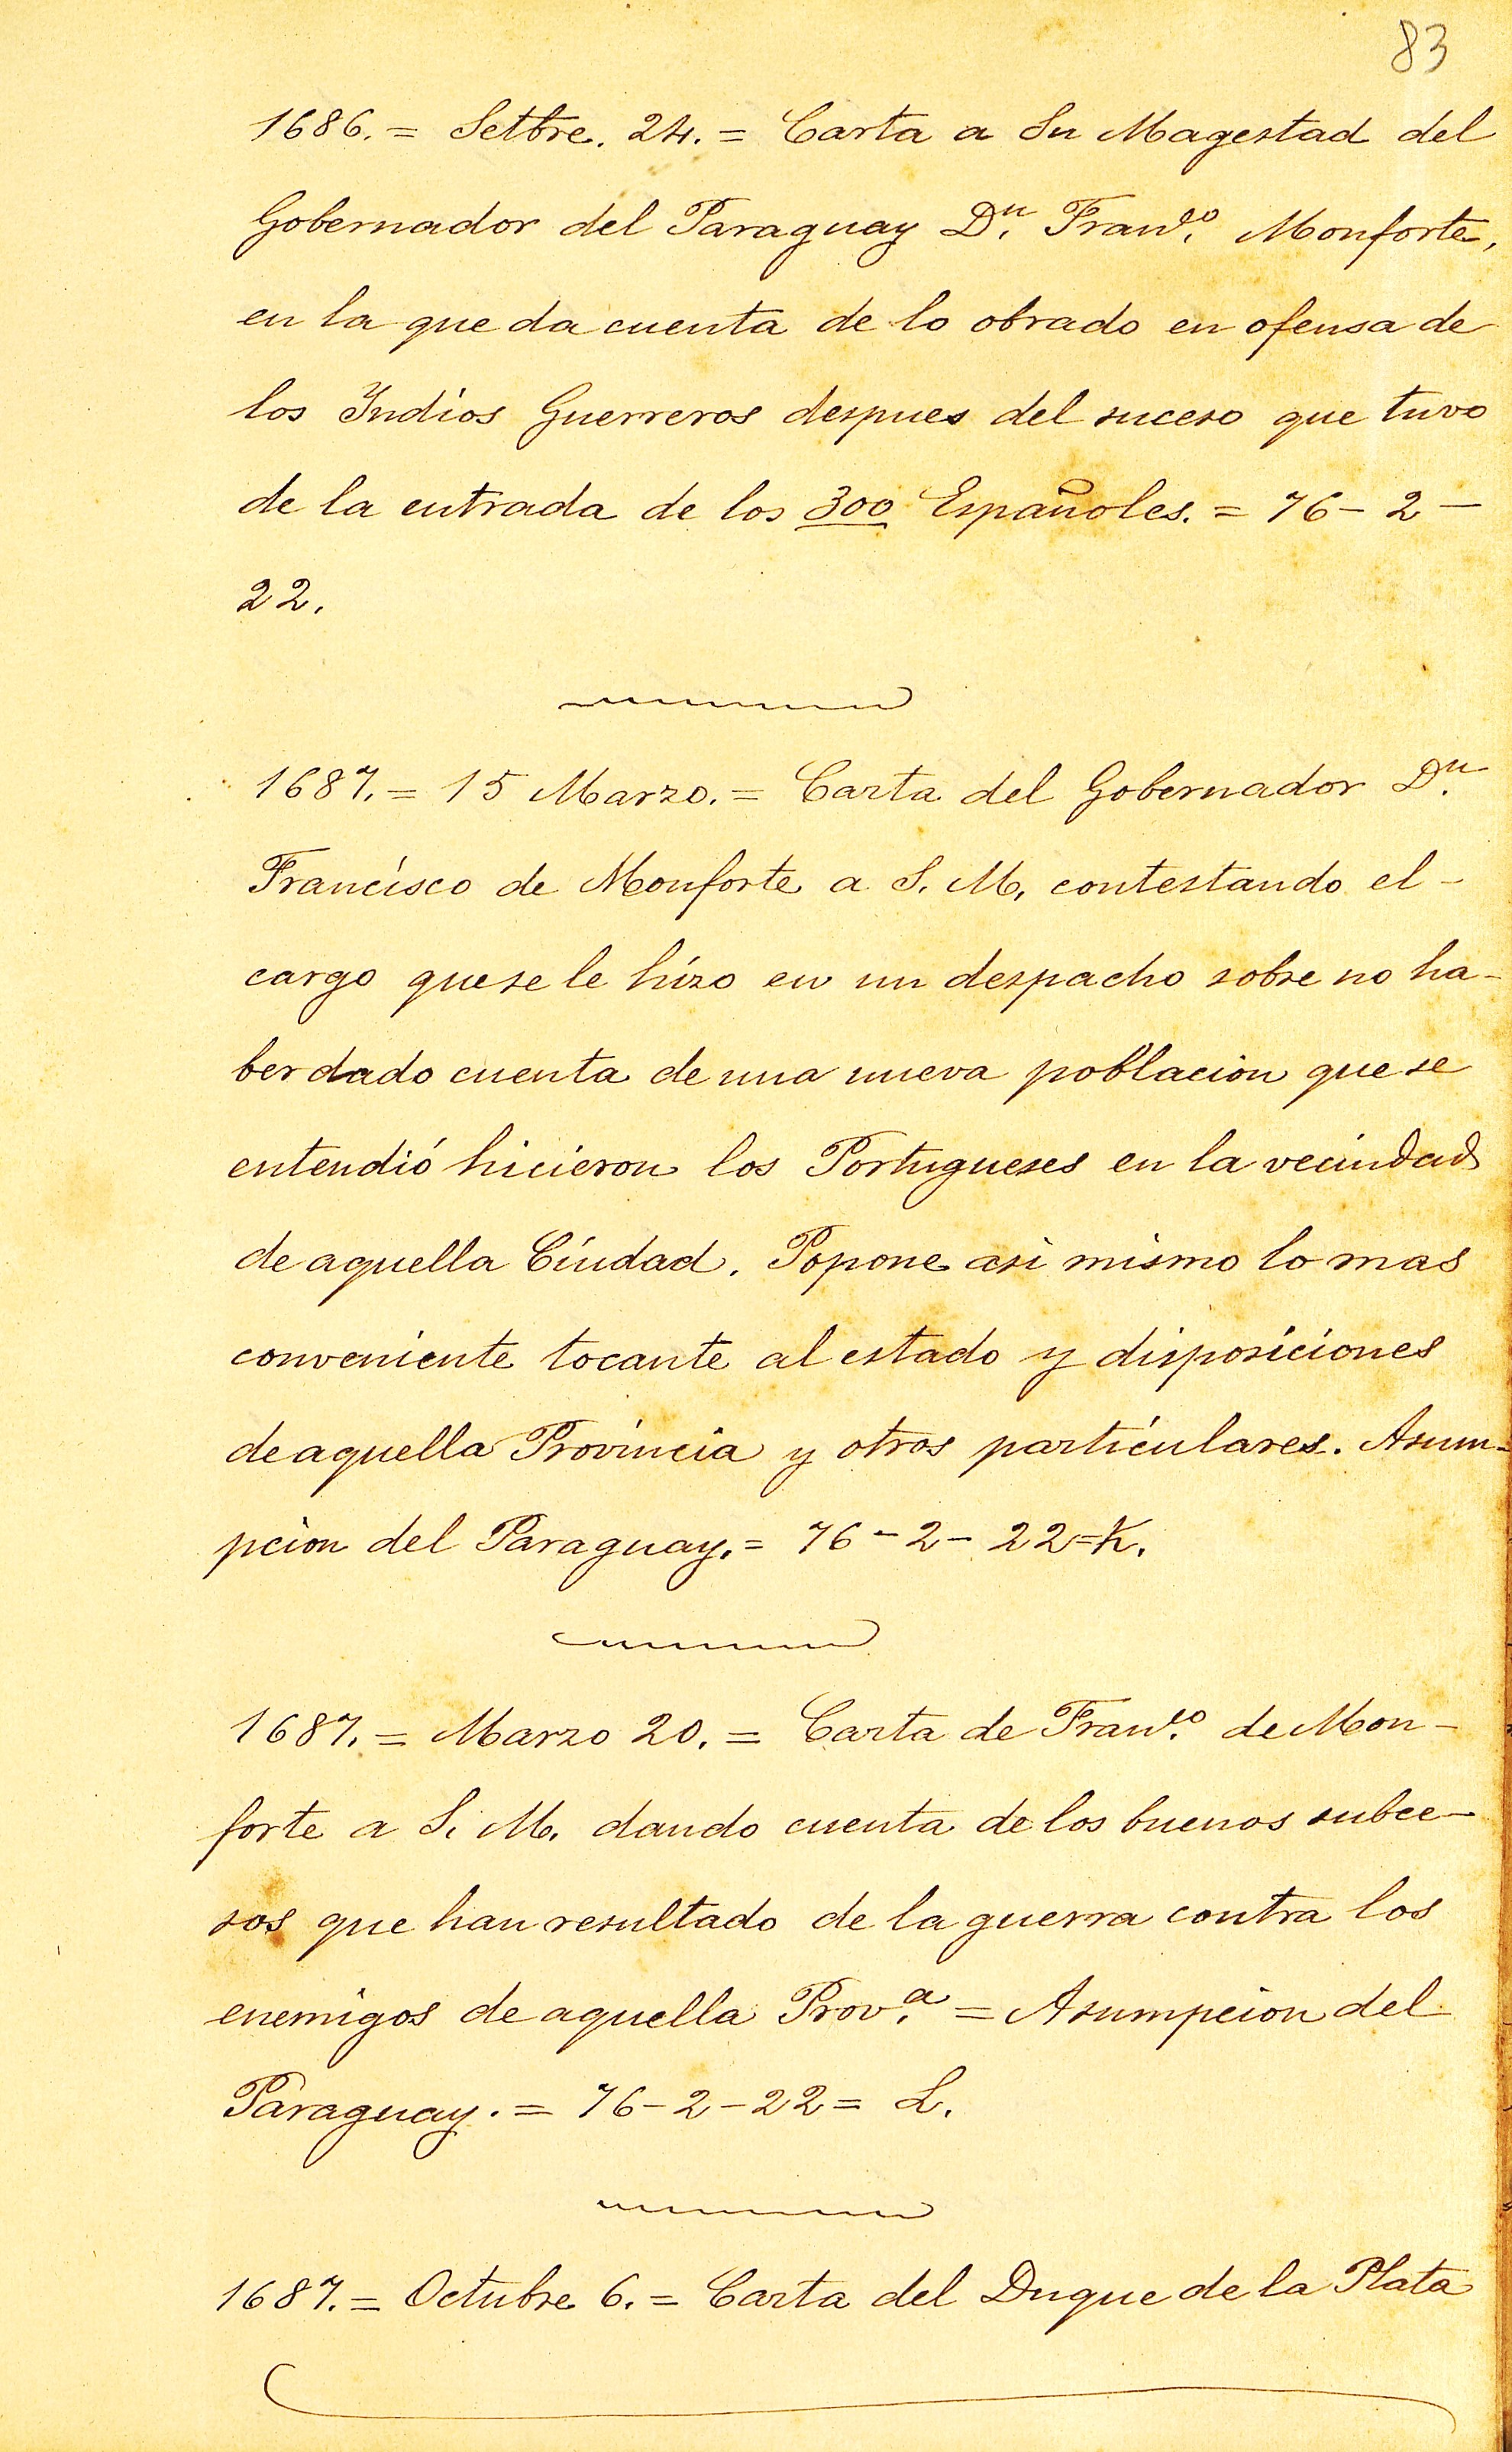 83
1686. = Setbre. 24. = Carta a Su Magestad del
Gobernador del Paraguay D.ⁿ Franc.º Monforte,
en la que da cuenta de lo obrado en ofensa de
los Indios Guerreros despues del suceso que tuvo
de la entrada de los 300 Españoles. = 76 - 2 -
22.
1687. = 15 Marzo. = Carta del Gobernador D.ⁿ
Francisco de Monforte a S. M. contestando el -
cargo que se le hizo en un despacho sobre no ha-
ber dado cuenta de una nueva poblacion que se
entendió hicieron los Portugueses en la vecindad
de aquella Ciudad. Popone asi mismo lo mas
conveniente tocante al estado y disposiciones
de aquella Provincia y otros particulares. Asum-
pcion del Paraguay. = 76 - 2 - 22 = K.
1687. = Marzo 20. = Carta de Franc.º de Mon-
forte a S. M. dando cuenta de los buenos subce-
sos que han resultado de la guerra contra los
enemigos de aquella Prov.ª = Asumpcion del
Paraguay. = 76 - 2 - 22 = L.
1687. = Octubre 6. = Carta del Duque de la Plata